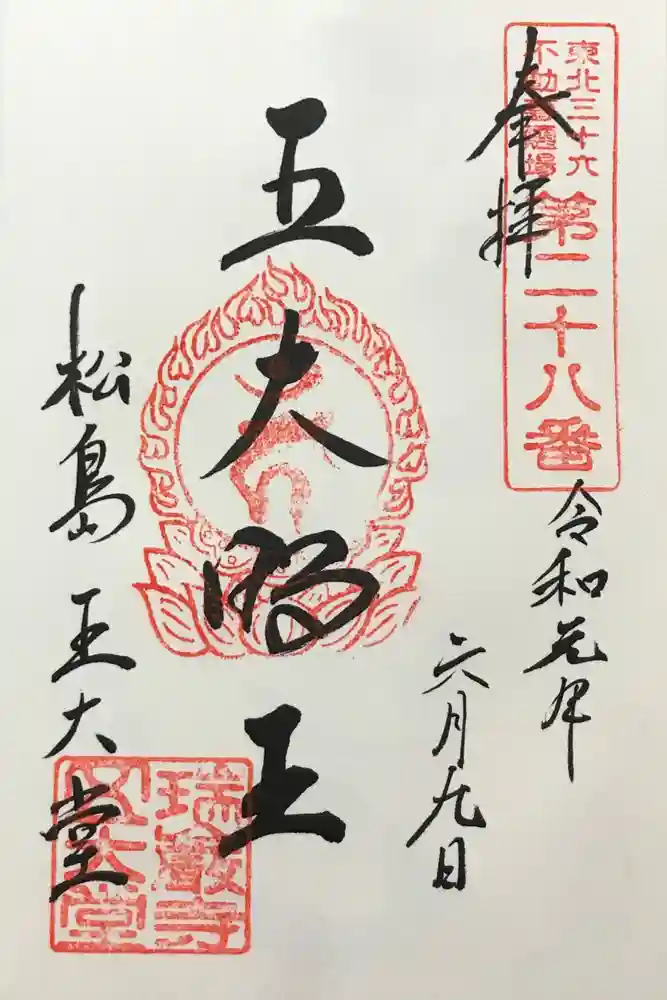 奉拝
東北三十六
不動尊霊場
第二十八番
令和元年
六月九日
五大明王
松島 五大堂
瑞巌寺
五大堂